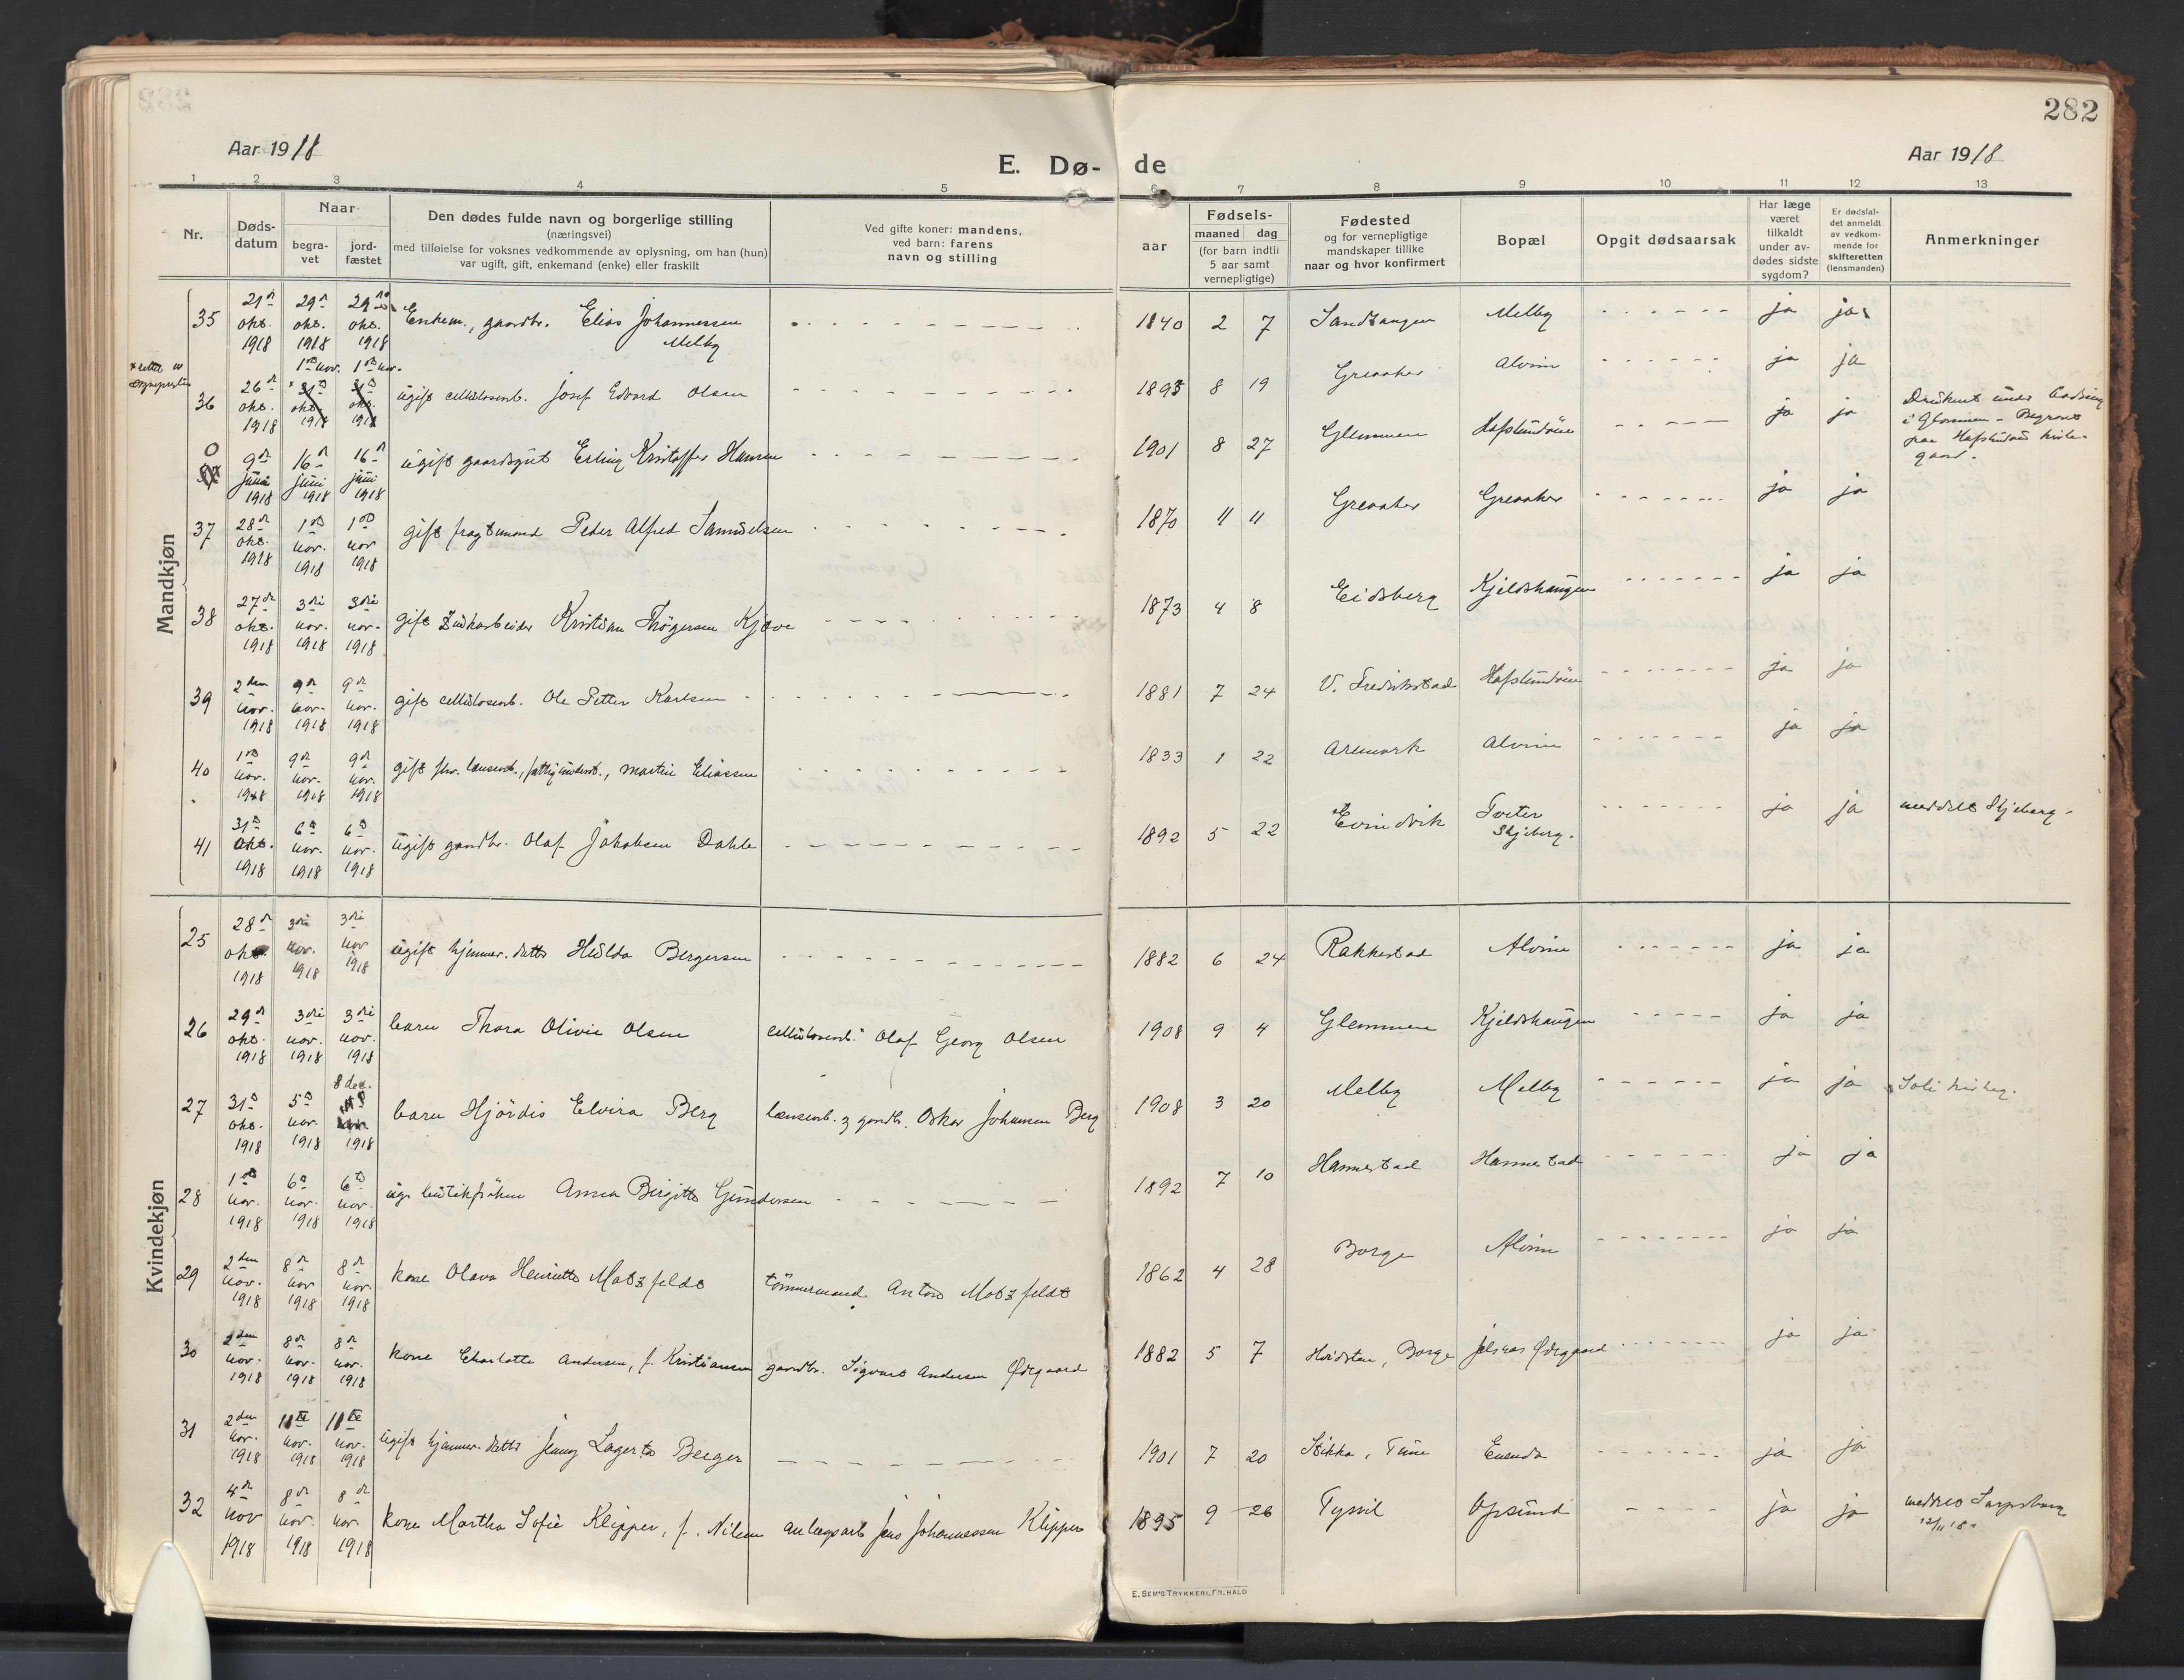 282
Aar 1918
E. Dø-
de
Aar 1918
1 2 3 4 5 6 7 8 9 10 11 12 13
Nr.
Døds-
datum
Naar
begra-
vet
jord-
fæstet
Den dødes fulde navn og borgerlige stilling
(næringsvei)
med tilføielse for voksnes vedkommende av oplysning, om han (hun)
var ugift, gift, enkemand (enke) eller fraskilt
Ved gifte koner: mandens,
ved barn: farens
navn og stilling
aar
Fødsels-
maaned dag
(for barn indtil
5 aar samt
vernepligtige)
Fødested
og for vernepligtige
mandskaper tillike
naar og hvor konfirmert
Bopæl
Opgit dødsaarsak
Har læge
været
tilkaldt
under av-
dødes sidste
sygdom?
Er dødsfal-
det anmeldt
av vedkom-
mende for
skifteretten
(lensmanden)
Anmerkninger
Mandkjøn
35 21de okt. 1918 29de okt. 1918 29de okt. 1918 Enkem., gaardbr. Elias Johannessen Melby 1840 2 7 Sandtangen Melby ja ja
36 26de okt. 1918 1ste nov. 1ste nov. 31te okt. 1918 31te okt. 1918 ugift cellulosearb. Josef Edvard Olsen 1895 8 19 Greaaker Alvim ja ja
0 9de juni 1918 16de juni 1918 16de juni 1918 ugift gaardsgut Erling Kristoffer Hansen 1901 8 27 Glemmen Hafslundsøen ja ja Druknet under badning
i Glommen - Begravet
paa Hafslunds kirke-
gaard.
37 28de okt. 1918 1ste nov. 1918 1ste nov 1918 gift fragtemand Peder Alfred Samuelsen 1870 11 11 Greaaker Greaaker ja ja
38 27de okt. 1918 3die nov. 1918 3die nov. 1918 gift Kristian Thøgersen Kjøve 1873 4 8 Eidsberg Kjeldshaugen ja ja
39 2den nov. 1918 9de nov. 1918 9de nov. 1918 gift cellulosearb. Ole Petter Karlsen 1881 7 24 V. Fredrikstad Hafslundsøen ja ja
40 1ste nov. 1918 9de nov. 1918 9de nov. 1918 gift fhv. lænsearb., fattigunderst., Martin Eliassen 1833 1 22 Aremark Alvim ja ja
41 31te okt. 1918 6te nov. 1918 6te nov. 1918 ugift gaardbr. Olaf Jakobsen Dahle 1892 5 22 Evindvik Tveter
Skjeberg. ja ja meddelt Skjeberg.
Kvindekjøn
25 28de okt. 1918 3die nov. 1918 3die nov 1918 ugift hjemmev. datter Hulda Bergersen 1882 6 24 Rakkestad Alvim ja ja
26 29de okt. 1918 3die nov. 1918 3die nov. 1918 barn Thora Olivie Olsen cellulosearb. Olaf Georg Olsen 1908 9 4 Glemmen Kjeldshaugen ja ja
27 31te okt. 1918 5te nov. 1918 8 dec. 1918 barn Hjördis Elvira Berg lænsearb. & gaardbr. Oskar Johansen Berg 1908 3 20 Melby Melby ja ja Soli kirkeg.
28 1ste nov. 1918 6te nov. 1918 6te nov. 1918 ug. butikfröken Anna Birgitte Gundersen 1892 7 10 Hannestad Hannestad ja ja
29 2den nov. 1918 8de nov 1918 8de nov. 1918 kone Olava Henriette Motzfeldt tömmermand Anton Motzfeldt 1862 4 28 Borge Alvim ja ja
30 2den nov. 1918 8de nov. 1918 8de nov. 1918 kone Charlotte Andersen, f. Kristiansen gaardbr. Sigvart Andersen Ødegaard 1882 5 7 Hvidsten, Borge Jelsnes Ødegaard ja ja
31 2den nov. 1918 11te nov. 1918 11te nov. 1918 ugift hjemmev. datter Jenny Lagerta Berger 1901 7 20 Stikka, Tune Enenda ja ja
32 4de nov 1918 8de nov. 1918 8de nov. 1918 kone Martha Sofie Klipper, f. Nilsen anlægsarb Jens Johannessen Klipper 1895 9 26 Tyssil Opsund ja ja meddelt Sarpsborg
12/11 18.
E. SEM'S TRYKKERI, FR. HALD